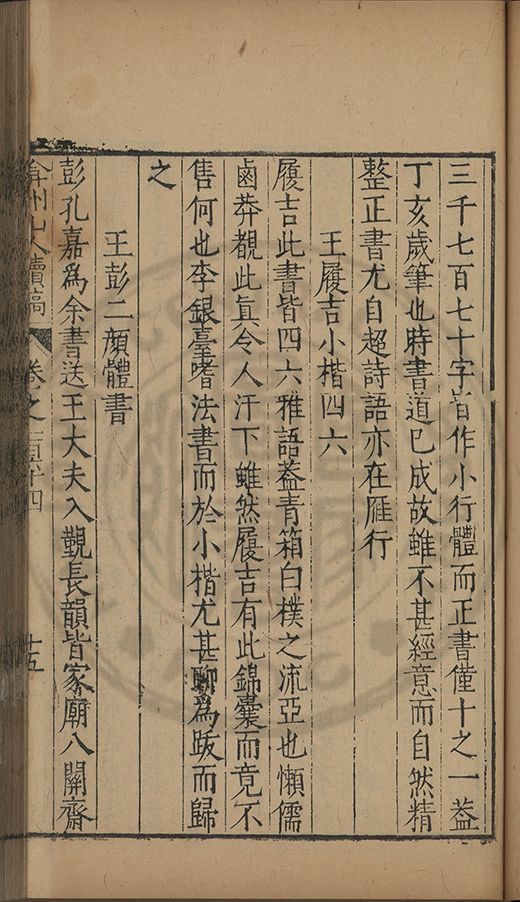 三千七百七十字皆作小行體而正書僅十之一葢
丁亥歲筆也時書道已成故雖不甚經意而自然精
整正書尤自超詩語亦在雁行
王履吉小楷四六
履吉此書皆四六雅語葢青箱白樸之流亞也懶儒
鹵莽覩此眞令人汗下雖然履吉有此錦囊而竟不
售何也李銀臺嗜法書而於小楷尤甚聊爲跋而歸
之
王彭二顔體書
彭孔嘉爲余書送王大夫入覲長韻皆家廟八關齋
弇州山人續稿 卷之一百六十四 十五